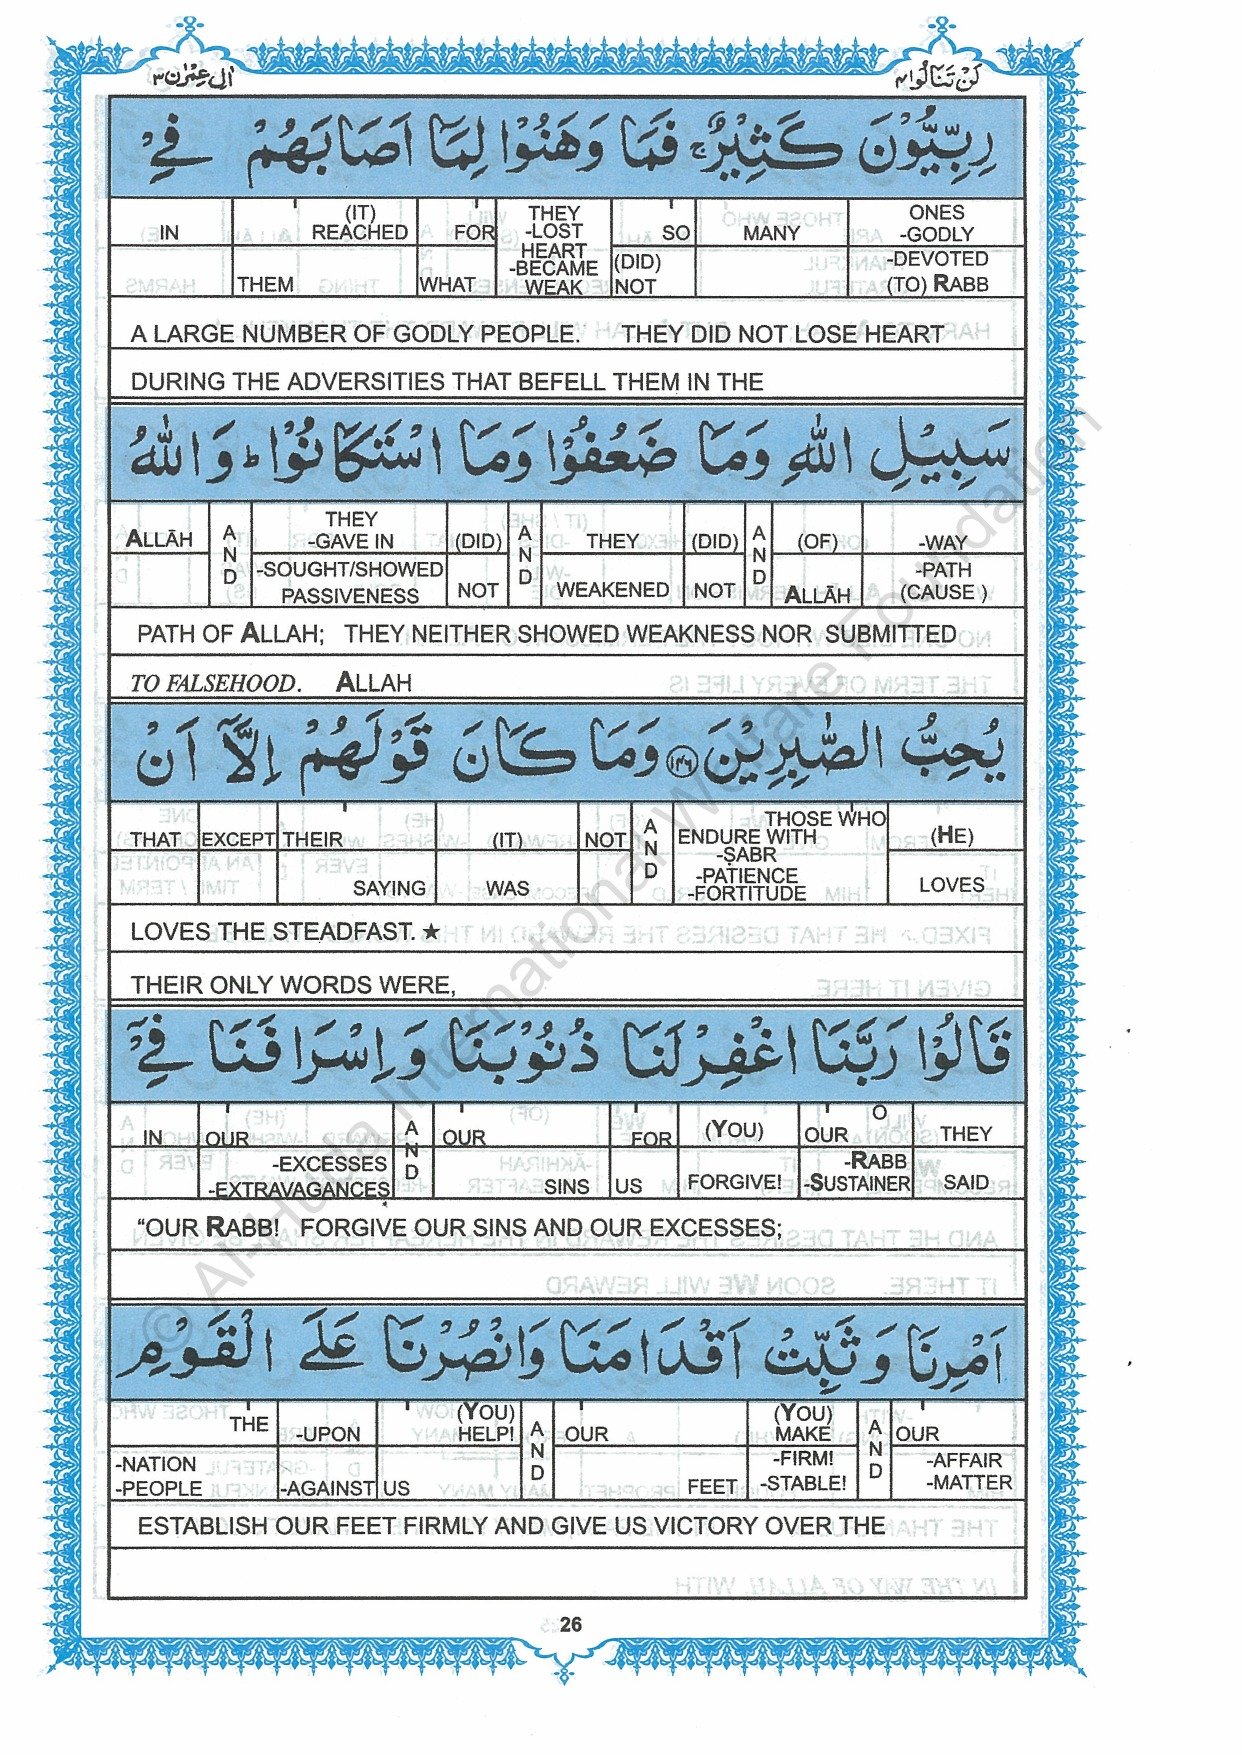 اٰلِ عِمْرٰن ٣ لَنْ تَنَالُوا ٤
رِبِّيُّوْنَ كَثِيْرٌ ۚ فَمَا وَهَنُوْا لِمَاۤ اَصَابَهُمْ فِيْ
IN (IT) REACHED THEM FOR WHAT THEY -LOST HEART -BECAME WEAK SO (DID) NOT MANY ONES -GODLY -DEVOTED (TO) RABB
A LARGE NUMBER OF GODLY PEOPLE. THEY DID NOT LOSE HEART
DURING THE ADVERSITIES THAT BEFELL THEM IN THE
سَبِيْلِ اللّٰهِ وَمَا ضَعُفُوْا وَمَا اسْتَكَانُوْا ؕ وَاللّٰهُ
ALLĀH AND THEY -GAVE IN -SOUGHT/SHOWED PASSIVENESS (DID) NOT AND THEY WEAKENED (DID) NOT AND (OF) ALLĀH -WAY -PATH (CAUSE )
PATH OF ALLAH; THEY NEITHER SHOWED WEAKNESS NOR SUBMITTED
TO FALSEHOOD. ALLAH
يُحِبُّ الصّٰبِرِيْنَ ١٤٦ وَمَا كَانَ قَوْلَهُمْ اِلَّاۤ اَنْ
THAT EXCEPT THEIR SAYING (IT) WAS NOT AND THOSE WHO ENDURE WITH -ṢABR -PATIENCE -FORTITUDE (HE) LOVES
LOVES THE STEADFAST. ★
THEIR ONLY WORDS WERE,
قَالُوْا رَبَّنَا اغْفِرْ لَنَا ذُنُوْبَنَا وَاِسْرَافَنَا فِيْۤ
IN OUR -EXCESSES -EXTRAVAGANCES AND OUR SINS FOR US (YOU) FORGIVE! O OUR -RABB -SUSTAINER THEY SAID
“OUR RABB! FORGIVE OUR SINS AND OUR EXCESSES;
اَمْرِنَا وَثَبِّتْ اَقْدَامَنَا وَانْصُرْنَا عَلَى الْقَوْمِ
THE -NATION -PEOPLE -UPON -AGAINST (YOU) HELP! US AND OUR FEET (YOU) MAKE -FIRM! -STABLE! AND OUR -AFFAIR -MATTER
ESTABLISH OUR FEET FIRMLY AND GIVE US VICTORY OVER THE
26
© Al-Huda International Welfare Foundation